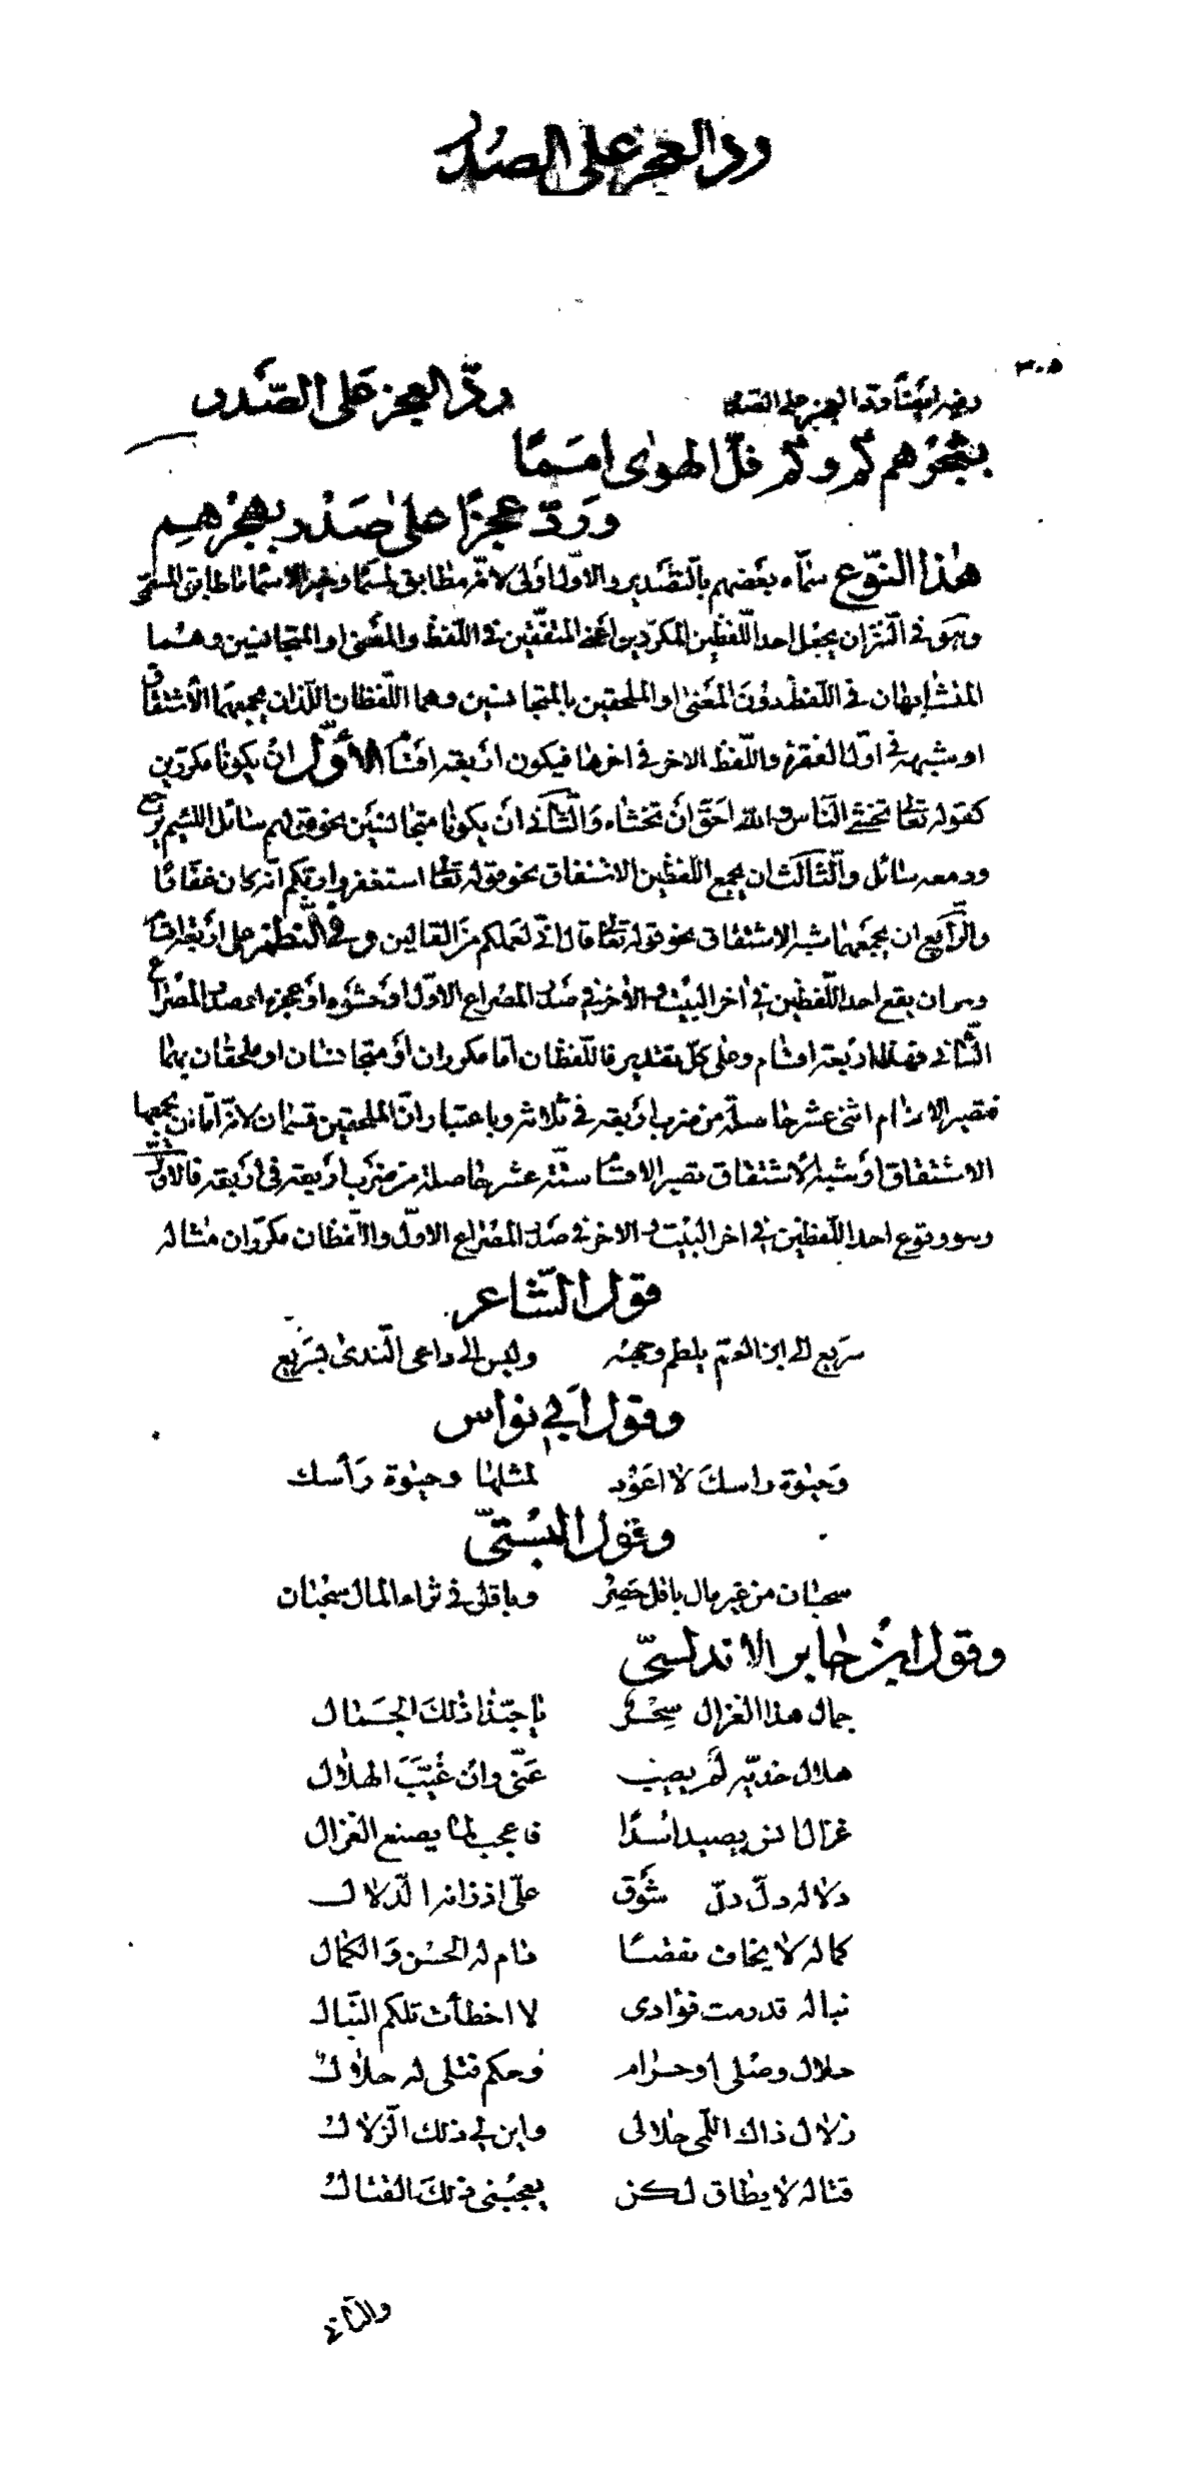 رد العجز على الصدر
٣٠٥
وفيه ايضًا رد العجز على الصدر
ردّ العجز عَلى الصَّدر
بفجرهم كم وكم فلّ الهوى امَمًا
وَرَدّ عجزًا على صَدْر بهجرهم
هٰذا النّوع سمّاه بَعضهم بالتّصَدير والاوّل اَولى لانّه مطابق لمسمّاه وخير الاسمآء ما طابق المسمّى
وهَو في النثر ان يجعل احد اللّفظين المكرّرين اعني المتفقين في اللّفظ والمَعنى او المتجانسين وهما
المتشابهان في اللّفظ دوُنَ المَعنى او الملحقين بالمتجانسين وهما اللّفظان اللذان يجمعهمَا الاشتقاق
او شبهه في اوّل الفقرة واللّفظ الاخر في اخرها فيكون اربعَة اقسَام الأوّل انْ يكونا مكرّرين
كقوله تعَالى تخشى النّاس والله احَقّ اَن تخشاه وَالثّاني ان يكونا متجانسَين نحو قولهم سائل اللئيم يرجع
ودمعه سائل والثّالث ان يجمع اللفظين الاشتقاق نحو قوله تعَالى استغفروا ربّكم انّه كان غفّارًا
والرّابع ان يجمَعهما شبه الاشتقاق نحو قوله تعَالى قال انّي لعَملكم مِنَ القالين وفي النّظم على اربَعة اقسَام
وهو ان يقع احد اللّفظين في اخر البَيْت والاخر في صَدر المصراع الاوّل اَو حَشوه اَو عجزه او صدر المصراع
الثّاني فهٰذه اربَعة اقسام وعلى كلّ تقدير فاللّفظان امّا مكرران اَو متجانسان او ملحقان بهما
فتصير الاقسام اثنى عشر حاصلة من ضرب اربعة في ثلاثة وباعتبار انّ الملحقين قسمان لانّه امّا ان يجمعهما
الاشتقاق اَو شبه الاشتقاق تصير الاقسَام ستّة عشر حاصلة من ضَرب اربعة في اربَعة فالاوّل
وهو وقوع احد اللّفظين في اخر البَيْت والاخر في صَدر المصراع الاوّل واللّفظان مكرّران مثاله
قول الشّاعر
سَريع الى ابن العَم يلطم وجهَه    وليس الى داعى النّدىٰ بسَريع
وقول اَبي نواس
وَحيٰوة راسكَ لا اعَوُد    لمثلها وحيٰوة رَأسك
وقول البُستيّ
سحبان من غير مال باقل حَصِر    وباقل في ثراء المال سحْبان
وقول ابن جابر الاندلسيّ
جمال هذا الغزال سِحْر    يا حبّذا ذٰلكَ الجَمال
هلال خدّيه لَم يغيب    عَنّي وان غيّبَ الهلال
غزال انس يصيد اسْدًا    فاعجب لما يصنع الغزال
دلاله دلّ دلّ شَوق    علىّ اذ زانه الدّلال
كماله لا يخاف نقصًا    دام له الحسْن وَالكمال
نباله قد رمت فؤادى    لا اخطأت تلكم النّبال
حلال وصْلى او حرام    وحكم قتلى له حلال
زلال ذاك اللّمى حلالى    واين لي ذلك الزّلال
قتاله لا يطاق لكن    يعجبنى ذلكَ القتال
والثّاني